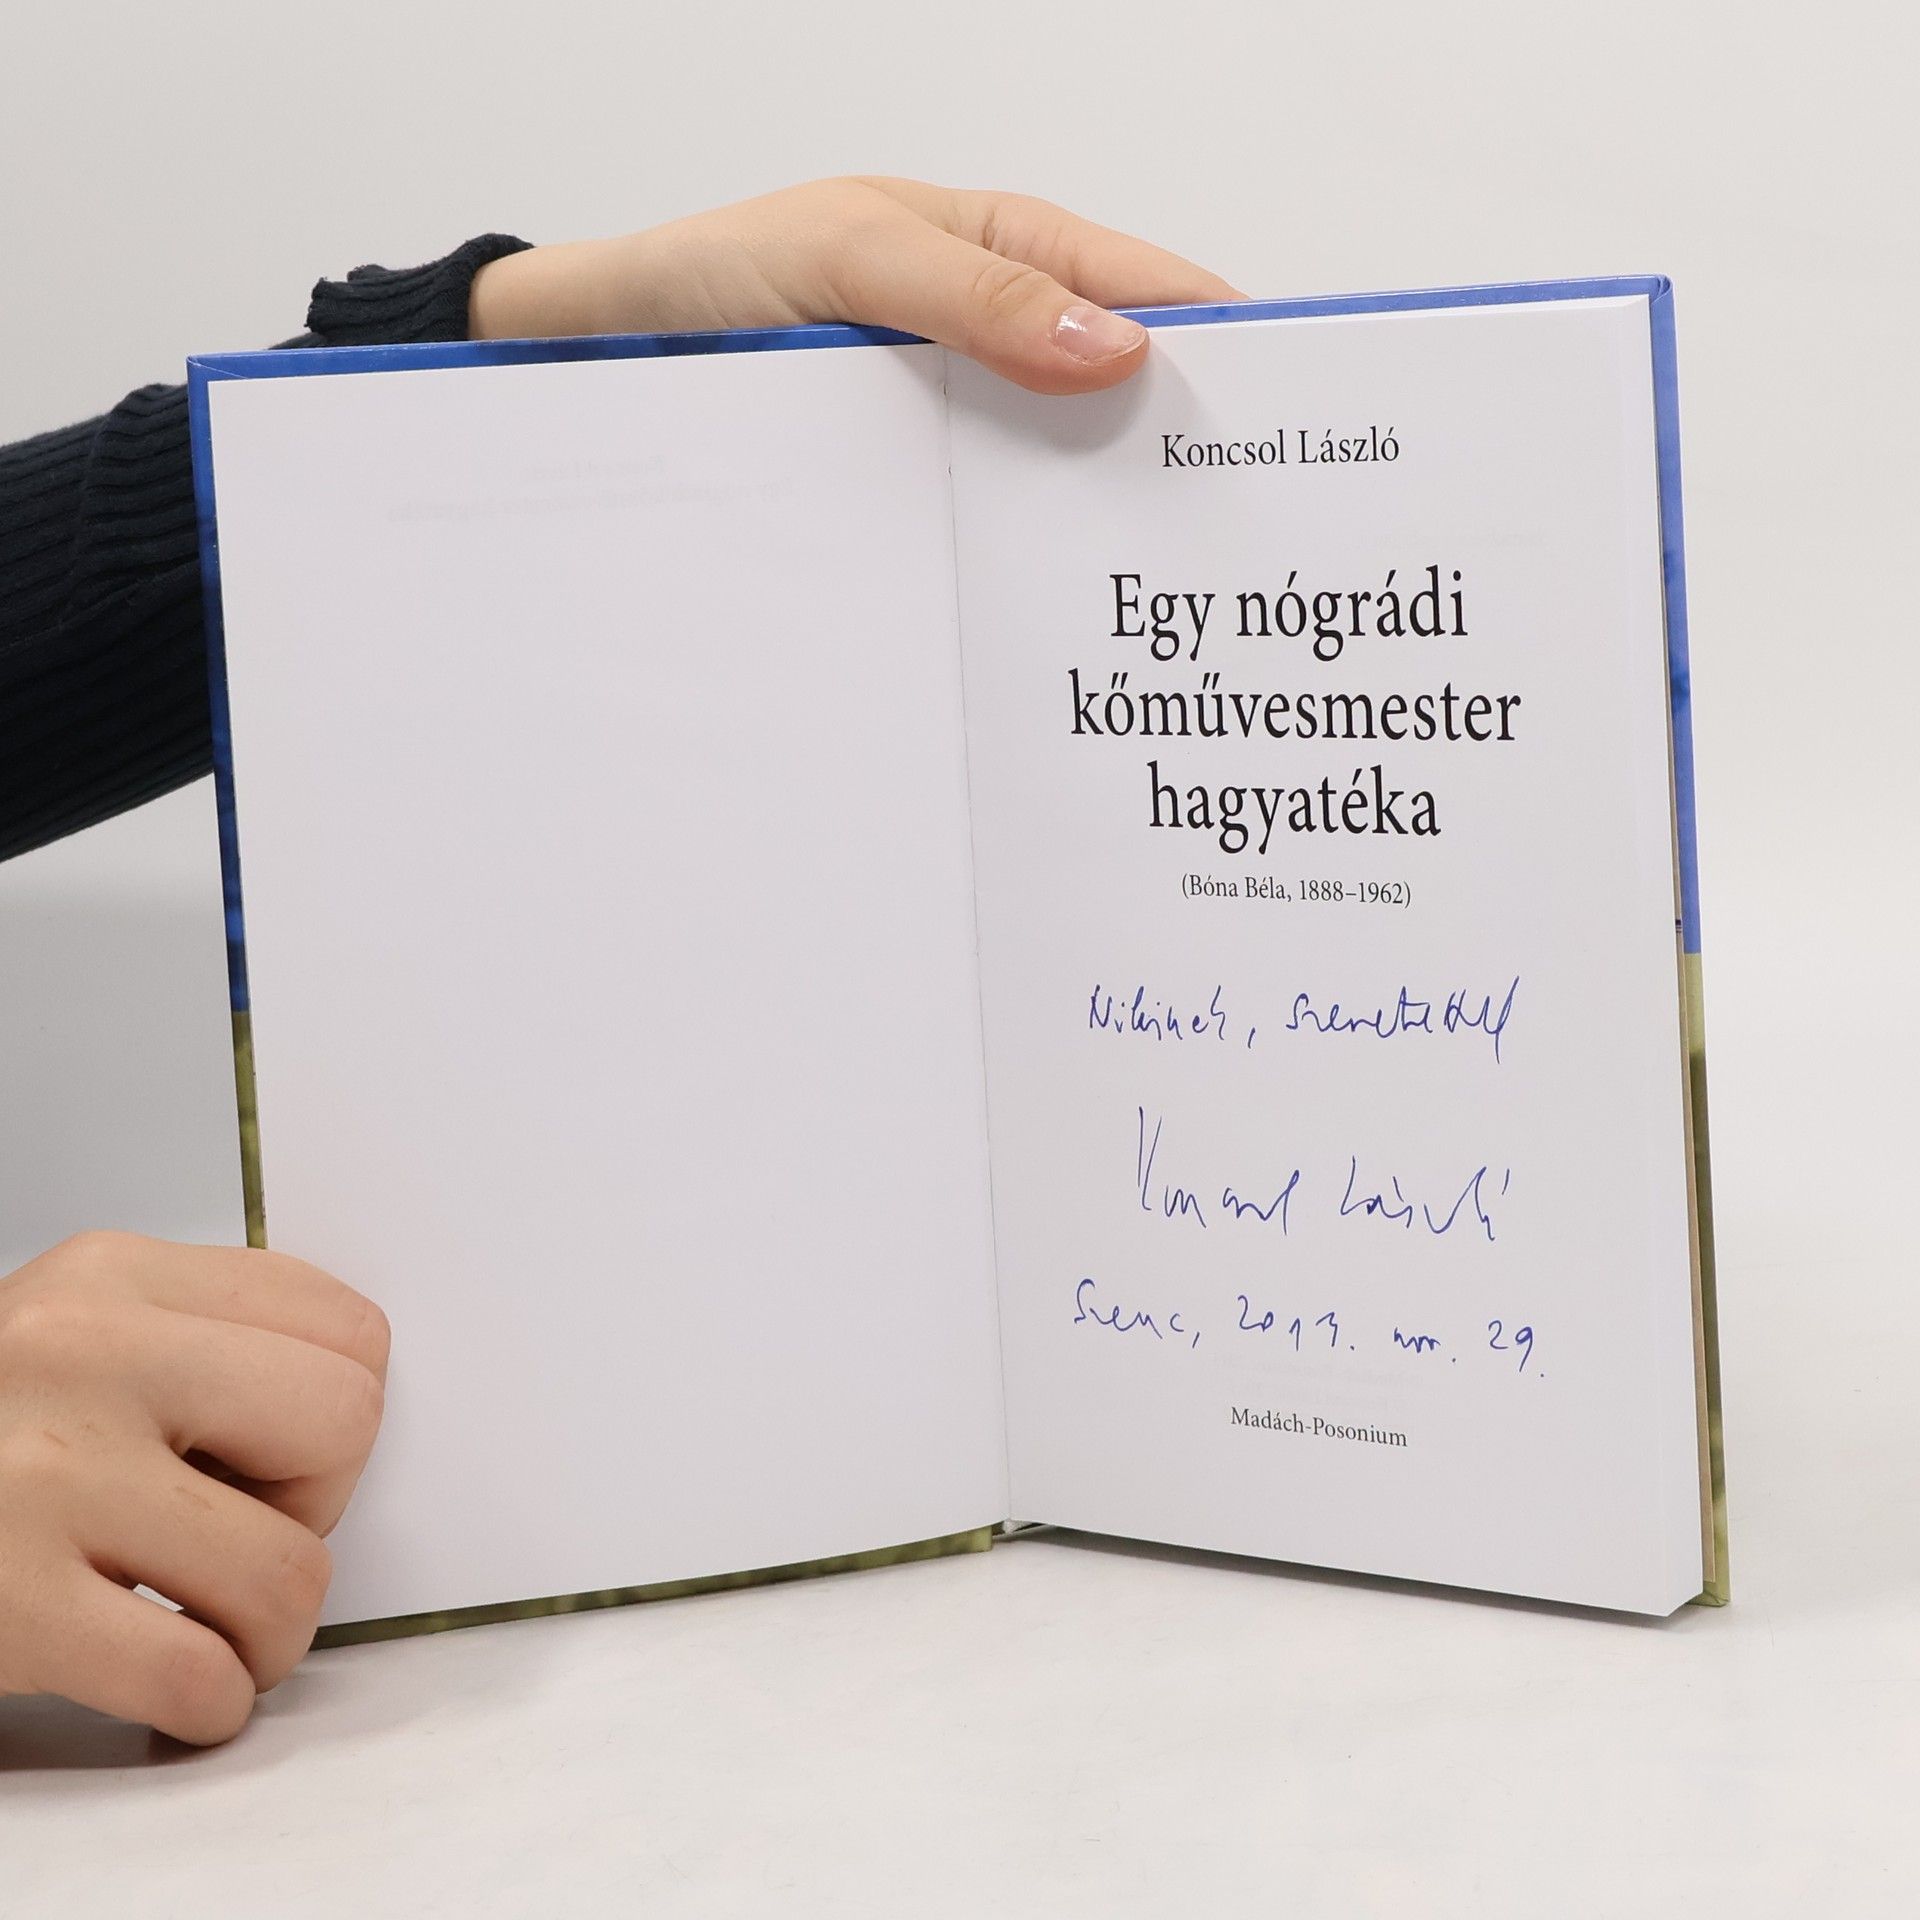 Koncsol László
Egy nógrádi
kőművesmester
hagyatéka
(Bóna Béla, 1888–1962)
Nikinek, szeretettel
Koncsol László
Szenc, 2013. nov. 29.
Madách-Posonium